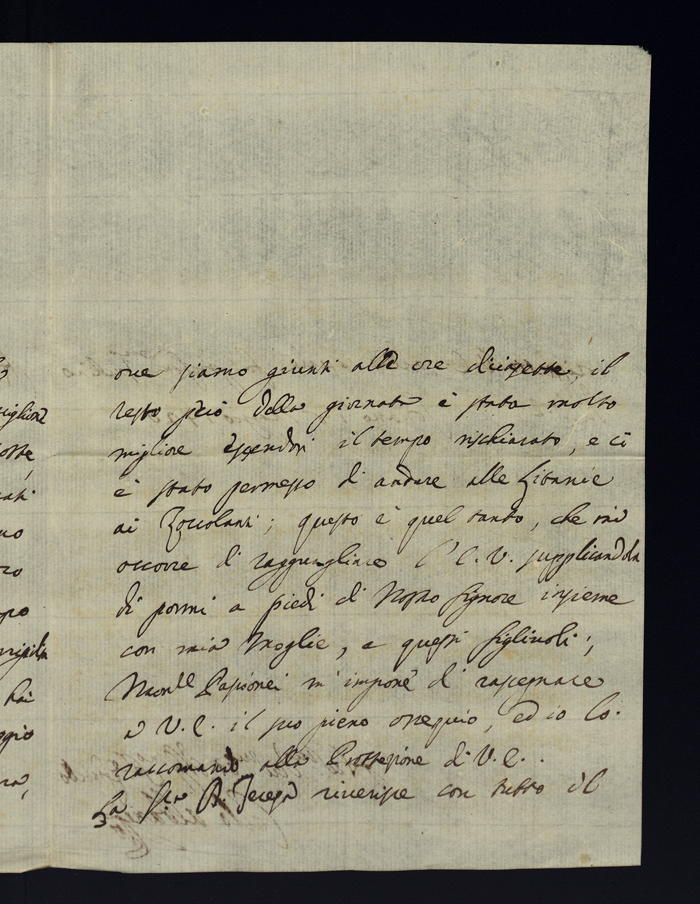 ove siamo giunti alle ore diciasette, il
resto però della giornata è stata molto
migliore essendosi il tempo rischiarato, e ci
è stato permesso di andare alle Litanie
ai Zoccolanti; questo è quel tanto, che mi
occorre di raggunagliare l'E.V. supplicandola
di pormi a piedi di Nostro Signore insieme
con mia Moglie, e questi figliuoli;
Passionei m'impone di rassegnare
a V.E. il suo pieno ossequio, ed io lo
raccomando alla Protezione di V.E.
La Teresa riverisce con tutto il